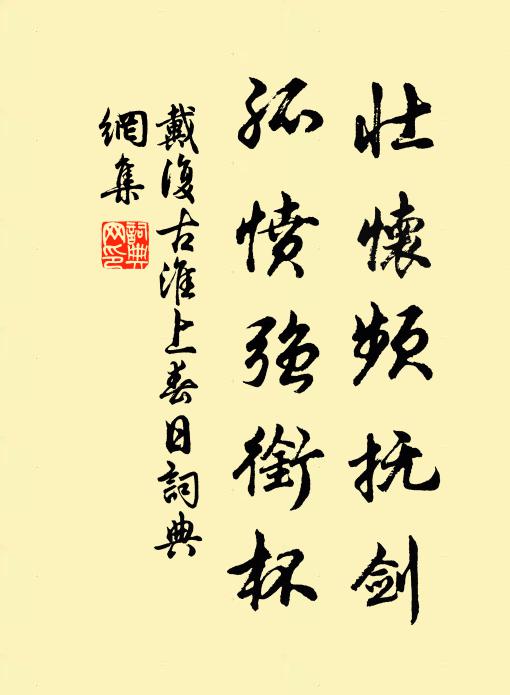 壮懷頻抚剑
孤憤强銜杯
戴復古淮上春日詞典
網集
詞典
网印